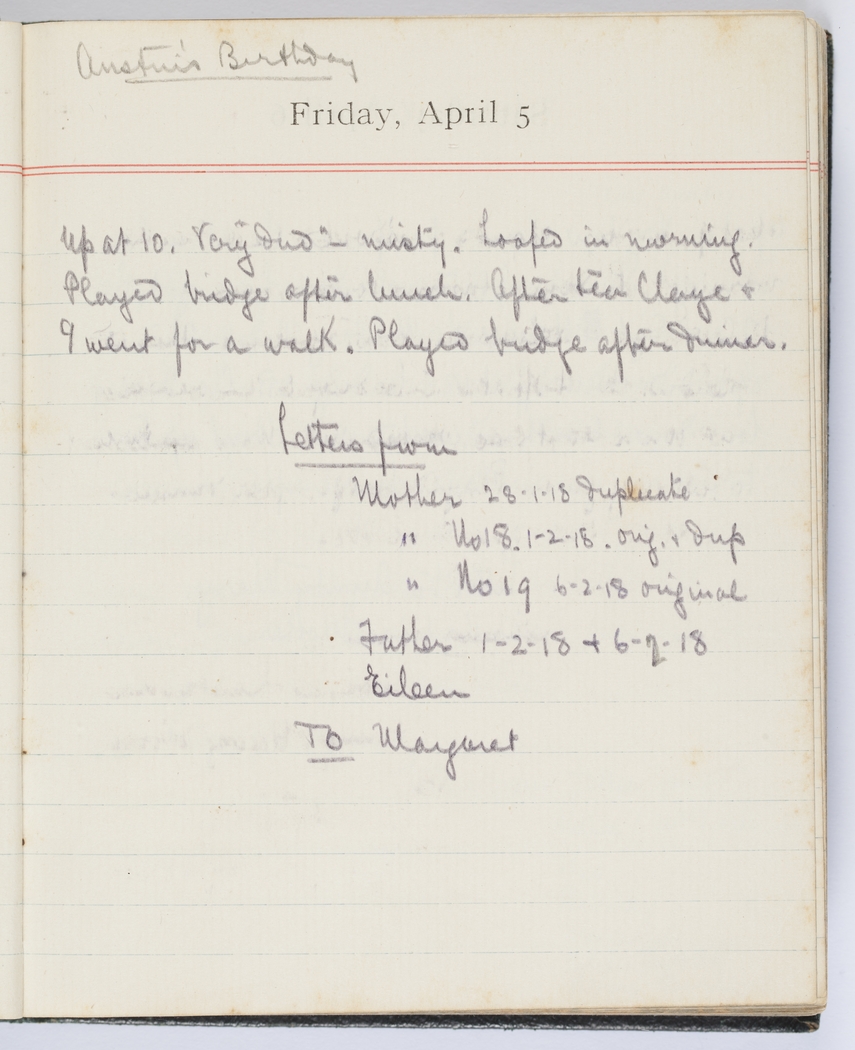 Austin's Birthday
Friday, April 5
Up at 10. Very dud - misty. Loafed in morning.
Played bridge after lunch. After tea Claye +
I went for a walk. Played bridge after dinner.
Letters from
Mother 28-1-18 duplicate
" No 18. 1-2-18. orig. + dup
" No 19 6-2-18 original
Father 1-2-18 + 6-2-18
Eileen
TO Margaret